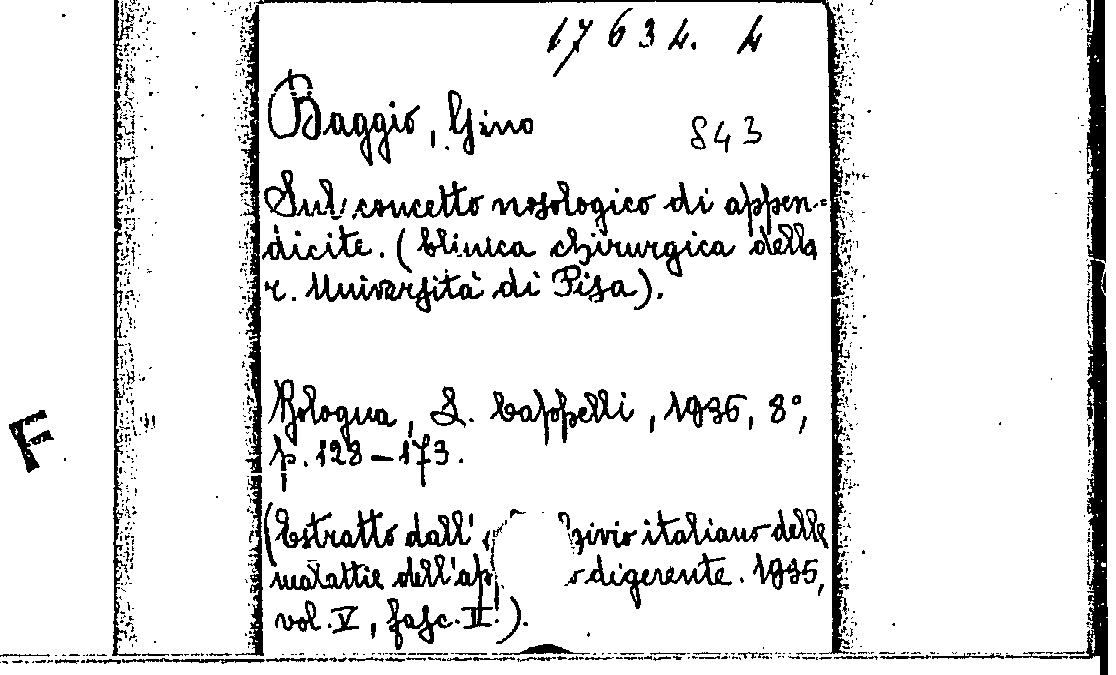 17634. 4
Baggio, Gino 843
Sul concetto nosologico di appen-
dicite. (Clinica chirurgica della
r. Università di Pisa).
Bologna, L. Cappelli, 1935, 8°,
p. 128-173.
(Estratto dall' italiano delle
malattie dell' digerente. 1935,
vol. V, fasc. II.).
F